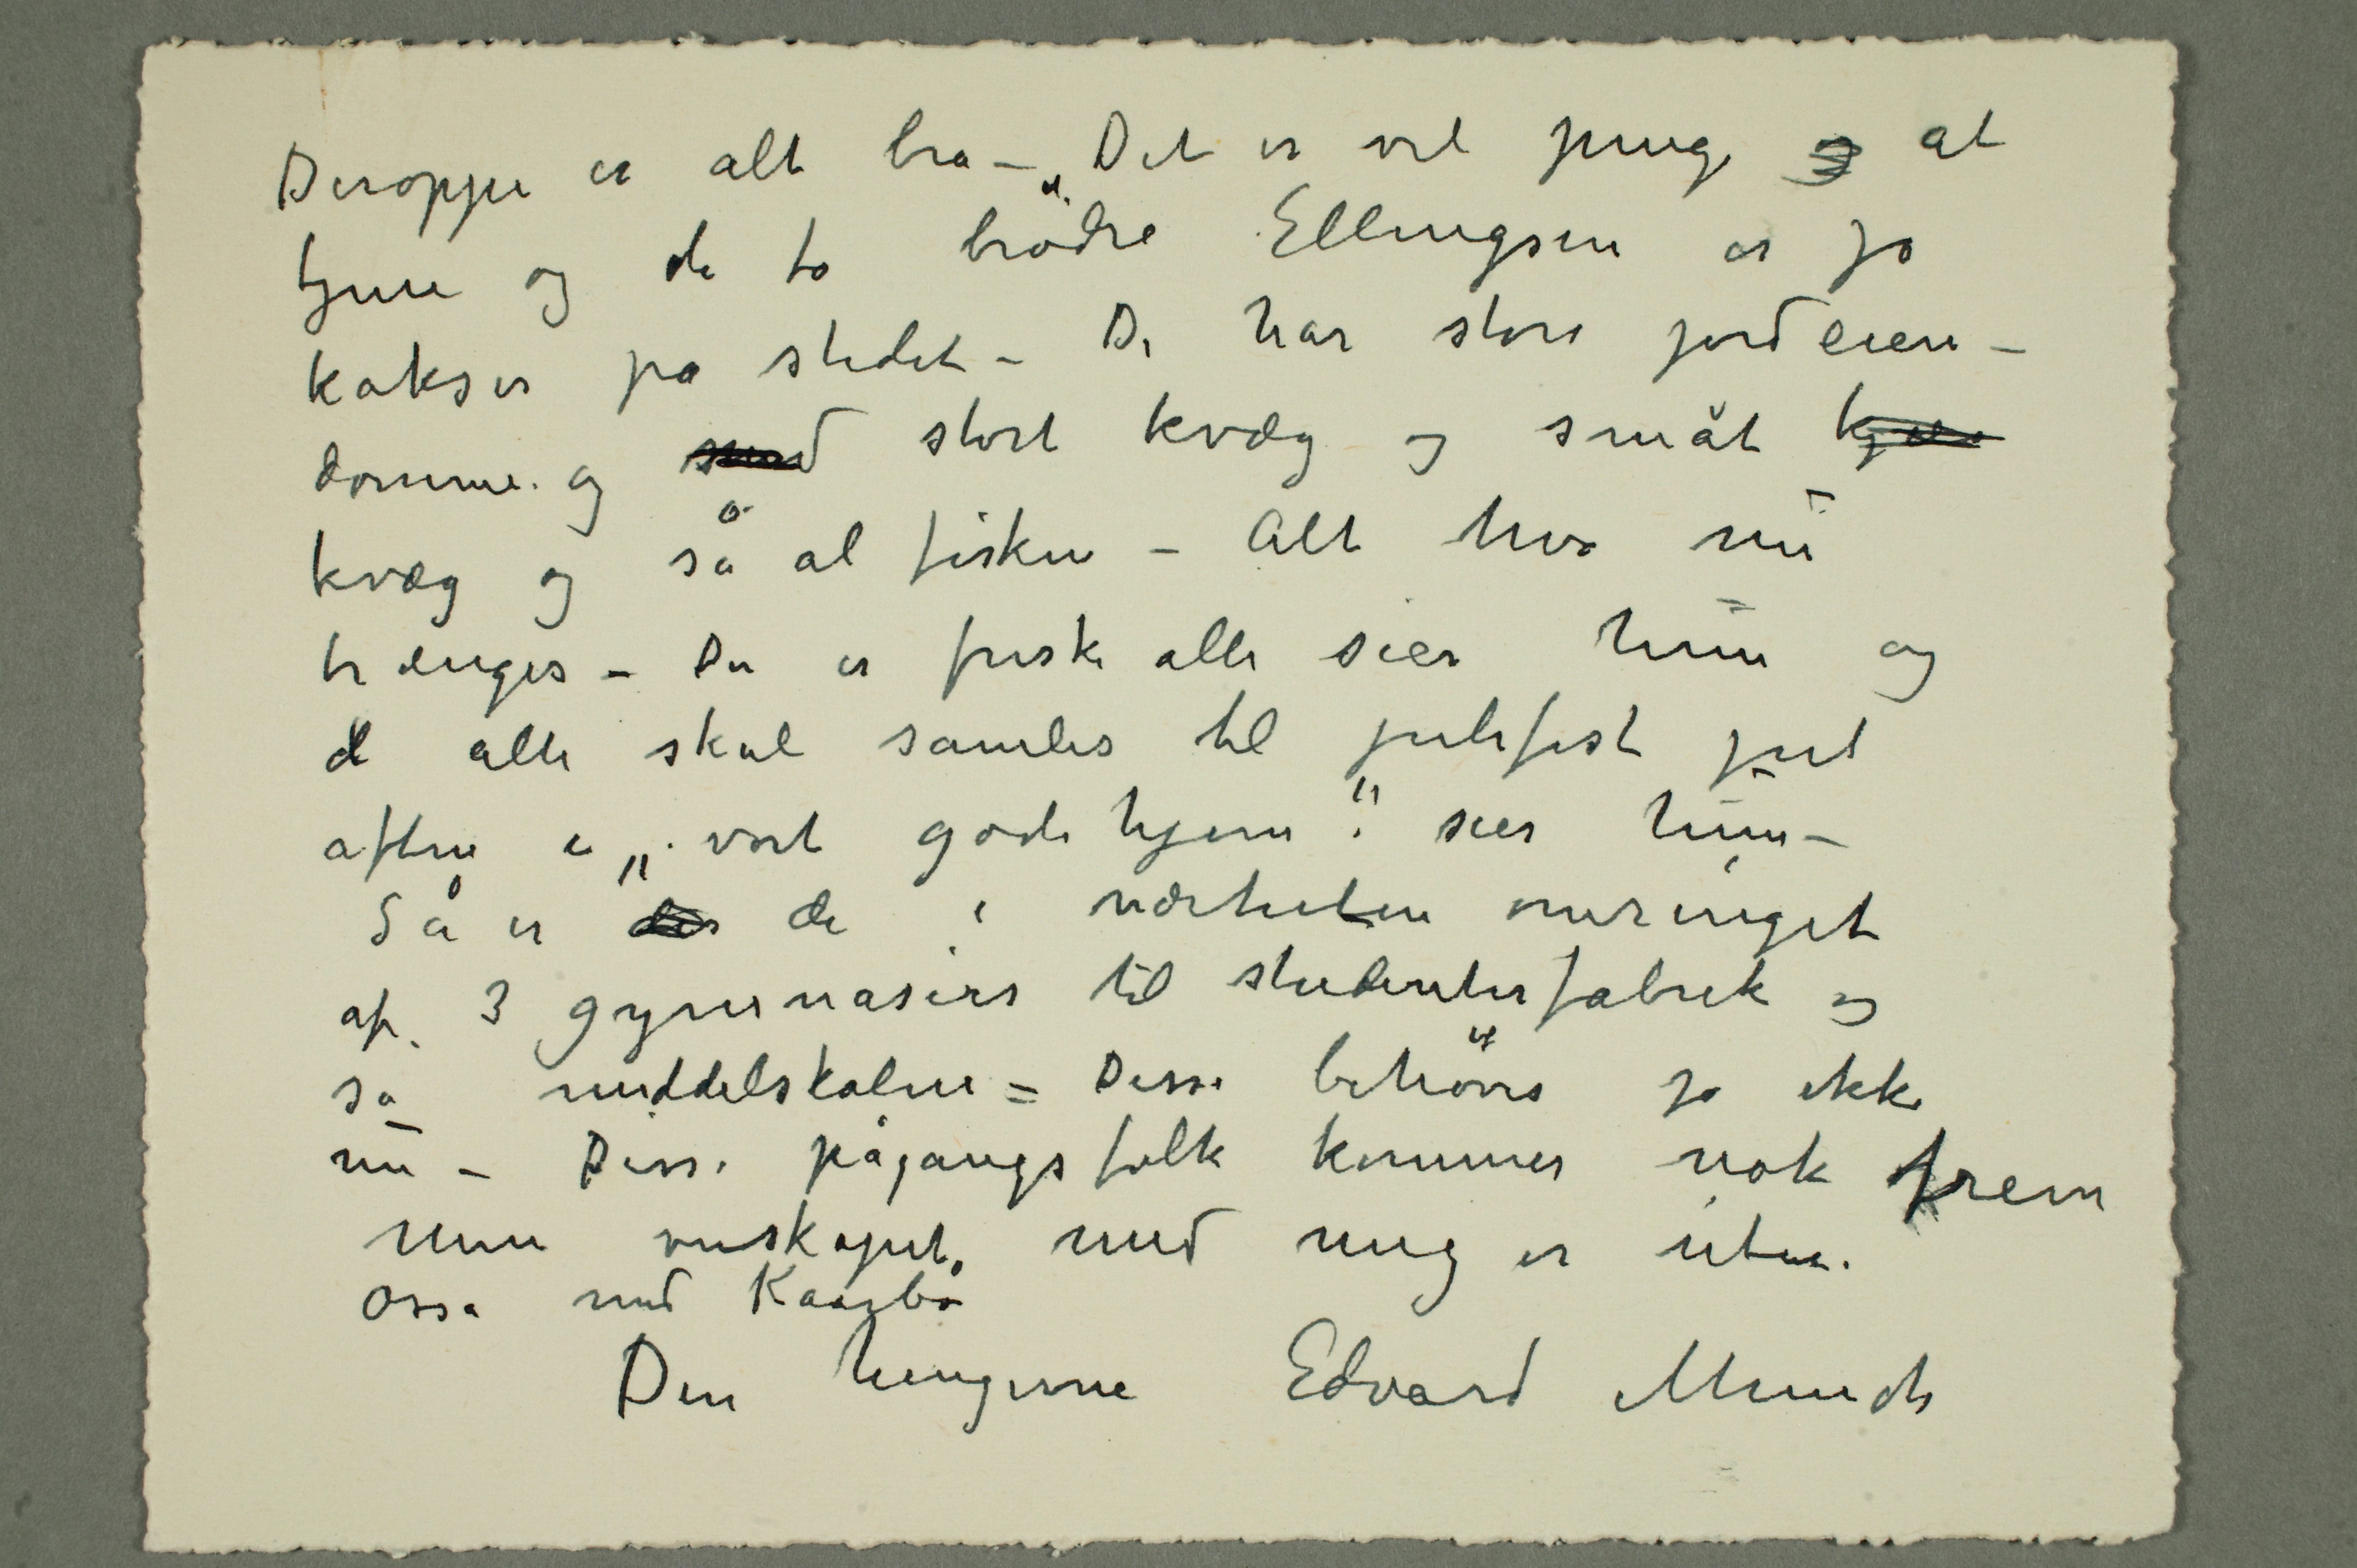 Deroppe er alt bra – Det er vel penge og at
tjene og de to brödre Ellingsen er jo
kakser på stedet – De har store jordeien-
domme og med stort kvæg og småt kjøer
kvæg og så al fisken – Alt hva nu
trænges – Der er friske alle sier hun og
de alle skal samles til julefest jul
aften i „vort gode hjem" sier hun –
Så er der de i nærheten omringet
af 3 gymnasiers til studenterfabrik og
så middelskolene = Disse behöves jo ikke
nu – Disse pågangsfolk kommer nok frem
Men venskapet med mig er uten.
Ossa med Kaarbø
Den hengivne Edvard Munch